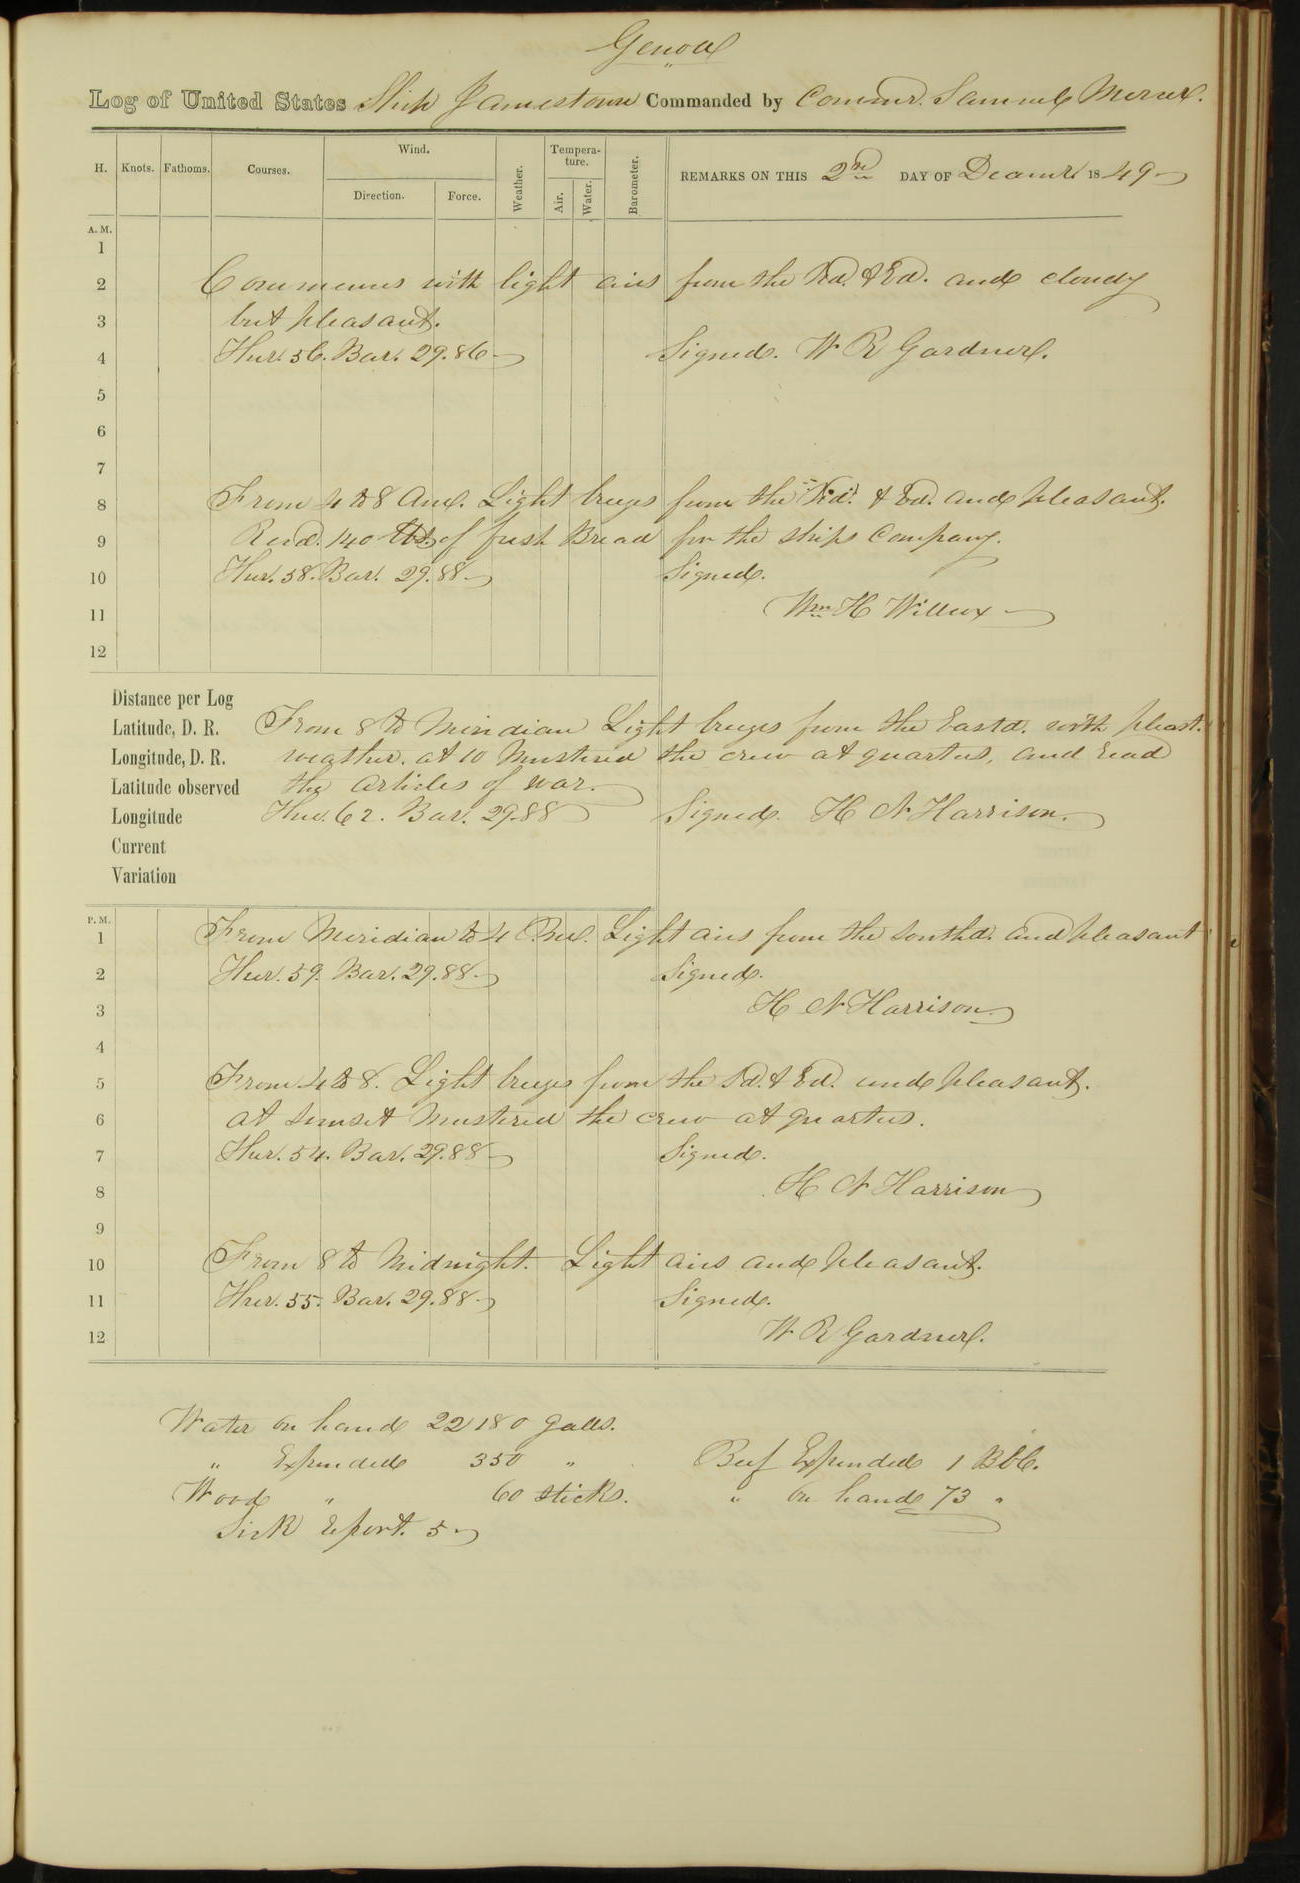 Genoa
Log of United States Ship Jamestown Commanded by Commr. Samuel Mercer.
H. Knots. Fathoms. Courses. Wind. Direction. Force. Weather. Tempera-ture. Air. Water. Barometer. REMARKS ON THIS 2nd DAY OF Decemr 1849
A. M.
1
2 Commences with light airs from the Nd. & Ed. and cloudy
3 but pleasant.
4 Ther. 56. Bar. 29.86 Signed. W R Gardner.
5
6
7
8 From 4 to 8 Am. Light breezes from the Nd. & Ed. and pleasant.
9 Recd. 140 lbs. of fresh Bread for the ships Company.
10 Ther. 58. Bar. 29.88 Signed.
11 Wm H Willcox
12
Distance per Log
Latitude, D. R. From 8 to Meridian Light breezes from the Eastd. with pleast.
Longitude, D. R. weather. at 10 Mustered the crew at quarters, and read
Latitude observed the articles of war.
Longitude Ther. 62. Bar. 29.88 Signed. H N Harrison.
Current
Variation
P. M.
1 From Meridian to 4 P.M. Light airs from the Southd. and pleasant
2 Ther. 59. Bar. 29.88 Signed.
3 H N Harrison
4
5 From 4 to 8. Light breezes from the Sd. & Ed. and pleasant.
6 at sunset Mustered the crew at quarters.
7 Ther. 54. Bar. 29.88 Signed.
8 H N Harrison
9
10 From 8 to Midnight. Light airs and pleasant.
11 Ther. 55. Bar. 29.88 Signed.
12 W R Gardner.
Water on hand 22180 Galls.
" Expended 350 " Beef Expended 1 Bbl.
Wood " 60 sticks. " On hand 73 "
Sick Report. 5